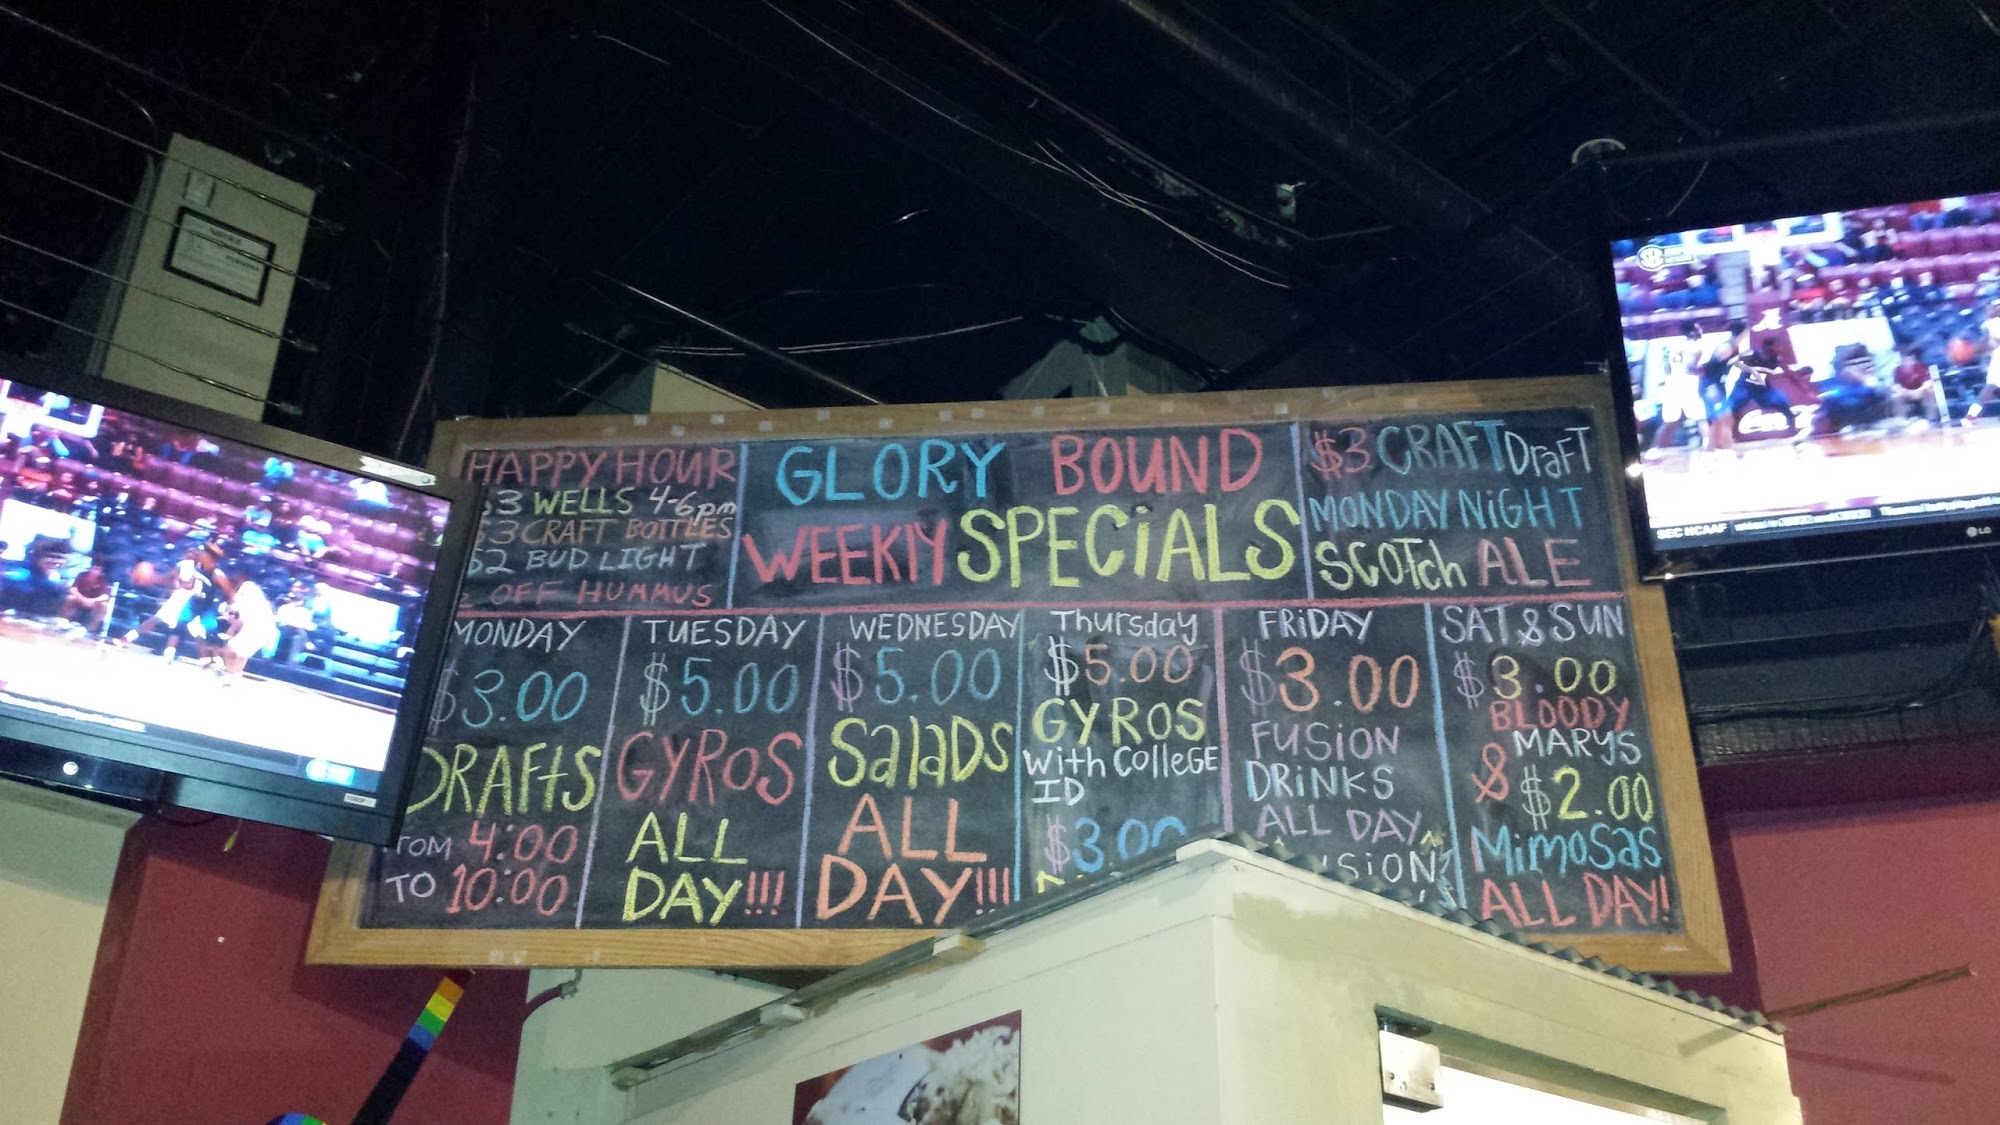 HAPPY HOUR
$3 WELLS 4-6pm
$3 CRAFT BOTTLES
$2 BUD LIGHT
OFF HUMMUS
GLORY BOUND
WEEKLY SPECiALS
$3 CRAFT DraFT
MONDAY NiGHT
SCOTCh ALE
MONDAY
$3.00
DRAFtS
ROM 4:00
TO 10:00
TUESDAY
$5.00
GYROS
ALL
DAY!!!
WEDNESDAY
$5.00
SalaDS
ALL
DAY!!!
Thursday
$5.00
GYROS
With COllEGE
ID
$3.00
FRiDAY
$3.00
FUSiON
DRiNKS
ALL DAY
SAT & SUN
$3.00
BLOODY
MARYS
& $2.00
MiMOSaS
ALL DAY!
NOTICE
SEC NCAAF
LG
Coca